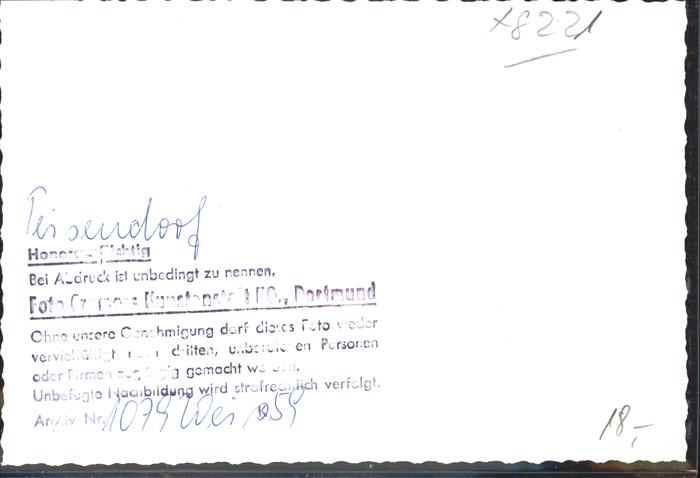 X8221
Teisendorf
Honorarpflichtig
Bei Abdruck ist unbedingt zu nennen,
Foto Cramers Kunstanstalt KG., Dortmund
Ohne unsere Genehmigung darf dieses Foto weder
vervielfältigt noch dritten, unberufenen Personen
oder Firmen zugängig gemacht werden.
Unbefugte Nachbildung wird strafrechtlich verfolgt.
Archiv Nr. 1079
18,-